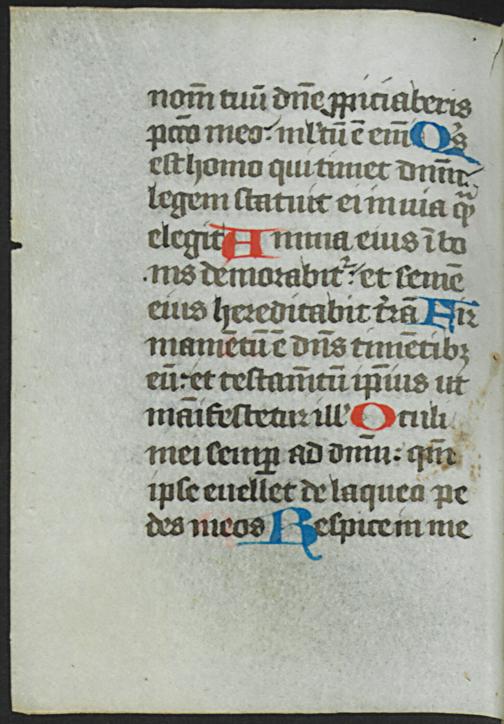 nom̄ tuū dn̄e ꝓpiciaberis
pcc̄o meo· ml̄tū ē em̄ Qͥs
est homo qui timet dnm̄:
legem statuit ei in uia qᷓ
elegit Anima eius ī bo
nis demorabitᷣ: et semē
eius hereditabit tr̄ā Fir
mamētū ē dn̄s timētibꝫ
eū: et testam̄tū ip̄ius ut
māifestetur ill' Oculi
mei semꝑ ad dnm̄: qm̄
ipse euellet de laqueo pe
des meos Respice in me